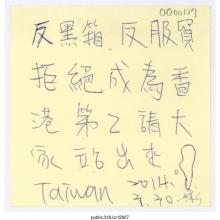 0000127
反黑箱.反服貿
拒絕成為香
港第乙請大
家站出來!
Taiwan 2014.
3.30
public.318.io/12807